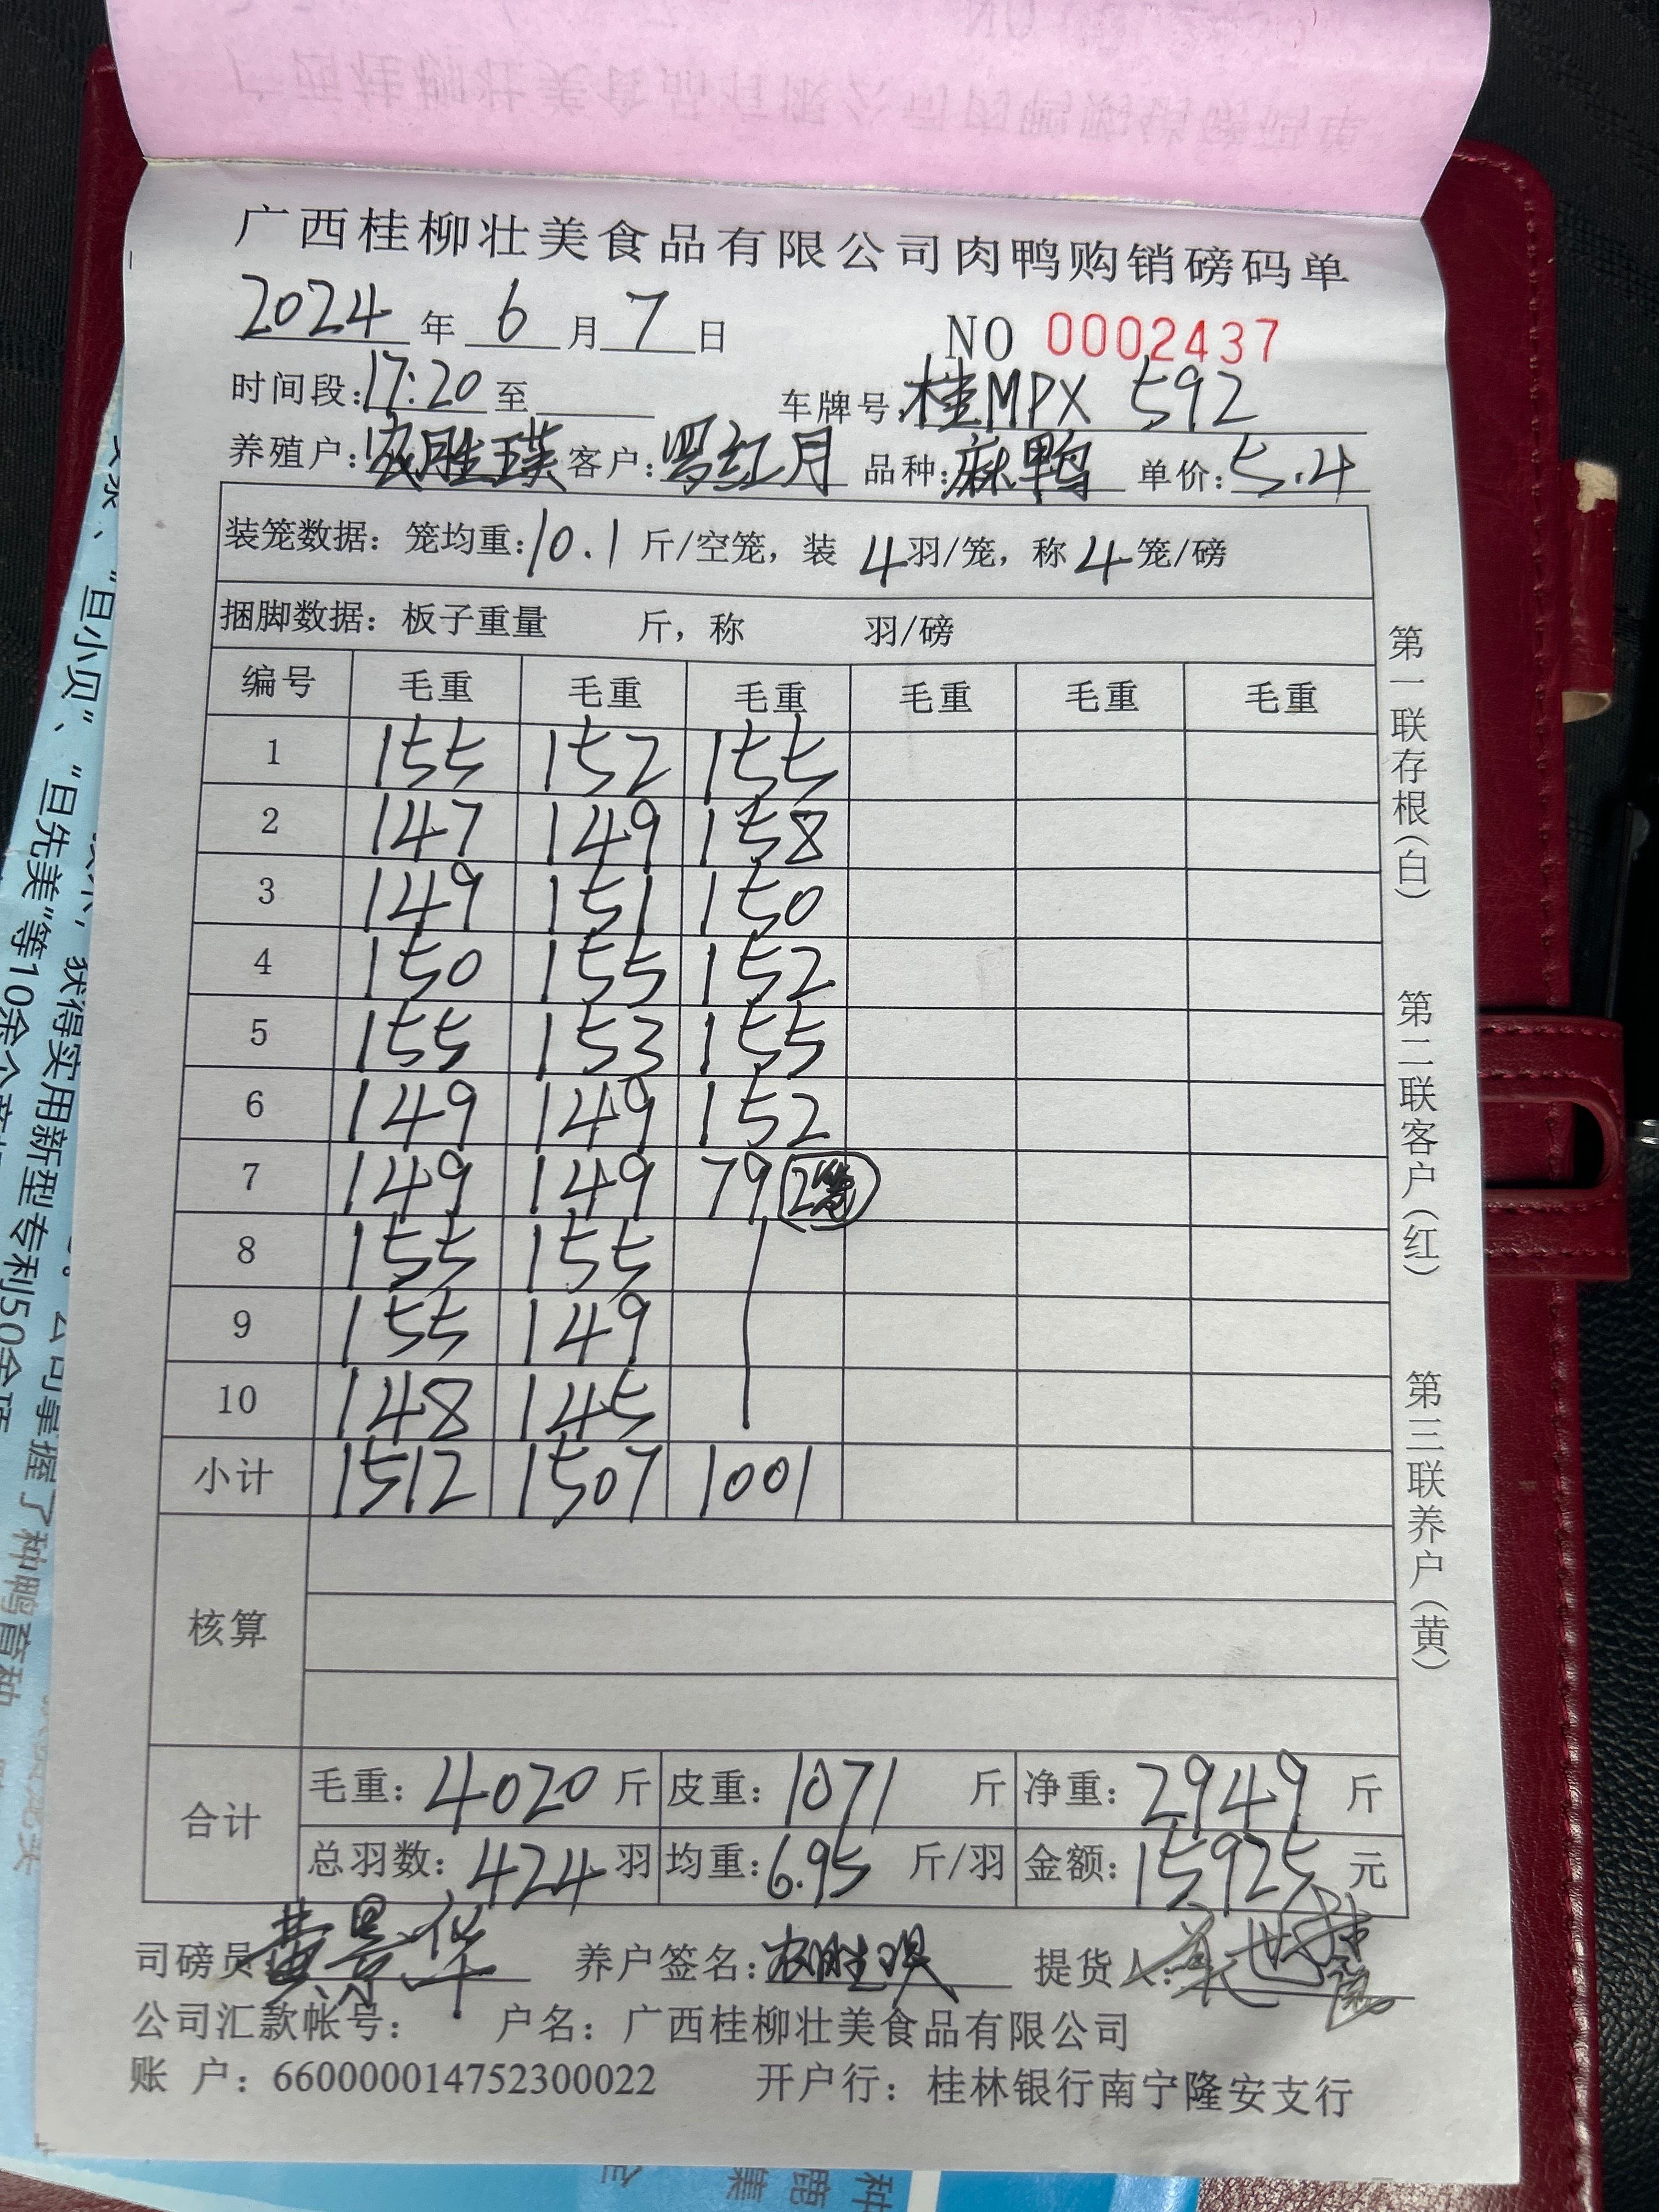 广西桂柳壮美食品有限公司肉鸭购销磅码单
2024 年 6 月 7 日 NO 0002437
时间段:17:20 至 车牌号:桂MPX 592
养殖户:农胜瑛 客户:罗红月 品种:麻鸭 单价:5.4
装笼数据:笼均重:10.1 斤/空笼,装 4 羽/笼,称 4 笼/磅
捆脚数据:板子重量 斤,称 羽/磅
编号 毛重 毛重 毛重 毛重 毛重 毛重
1 155 152 155
2 147 149 158
3 149 151 150
4 150 155 152
5 155 153 155
6 149 149 152
7 149 149 79 2笼
8 155 155
9 155 149
10 148 145
小计 1512 1507 1001
核算
合计 毛重:4020 斤 皮重:1071 斤 净重:2949 斤
总羽数:424 羽 均重:6.95 斤/羽 金额:15925 元
司磅员 黄景华 养户签名:农胜瑛 提货人:
公司汇款帐号: 户名:广西桂柳壮美食品有限公司
账 户:660000014752300022 开户行:桂林银行南宁隆安支行
第一联存根(白) 第二联客户(红) 第三联养户(黄)
“旦小贝”、“旦先美”等10余个
获得实用新型专利50余项
公司掌握了种鸭育种